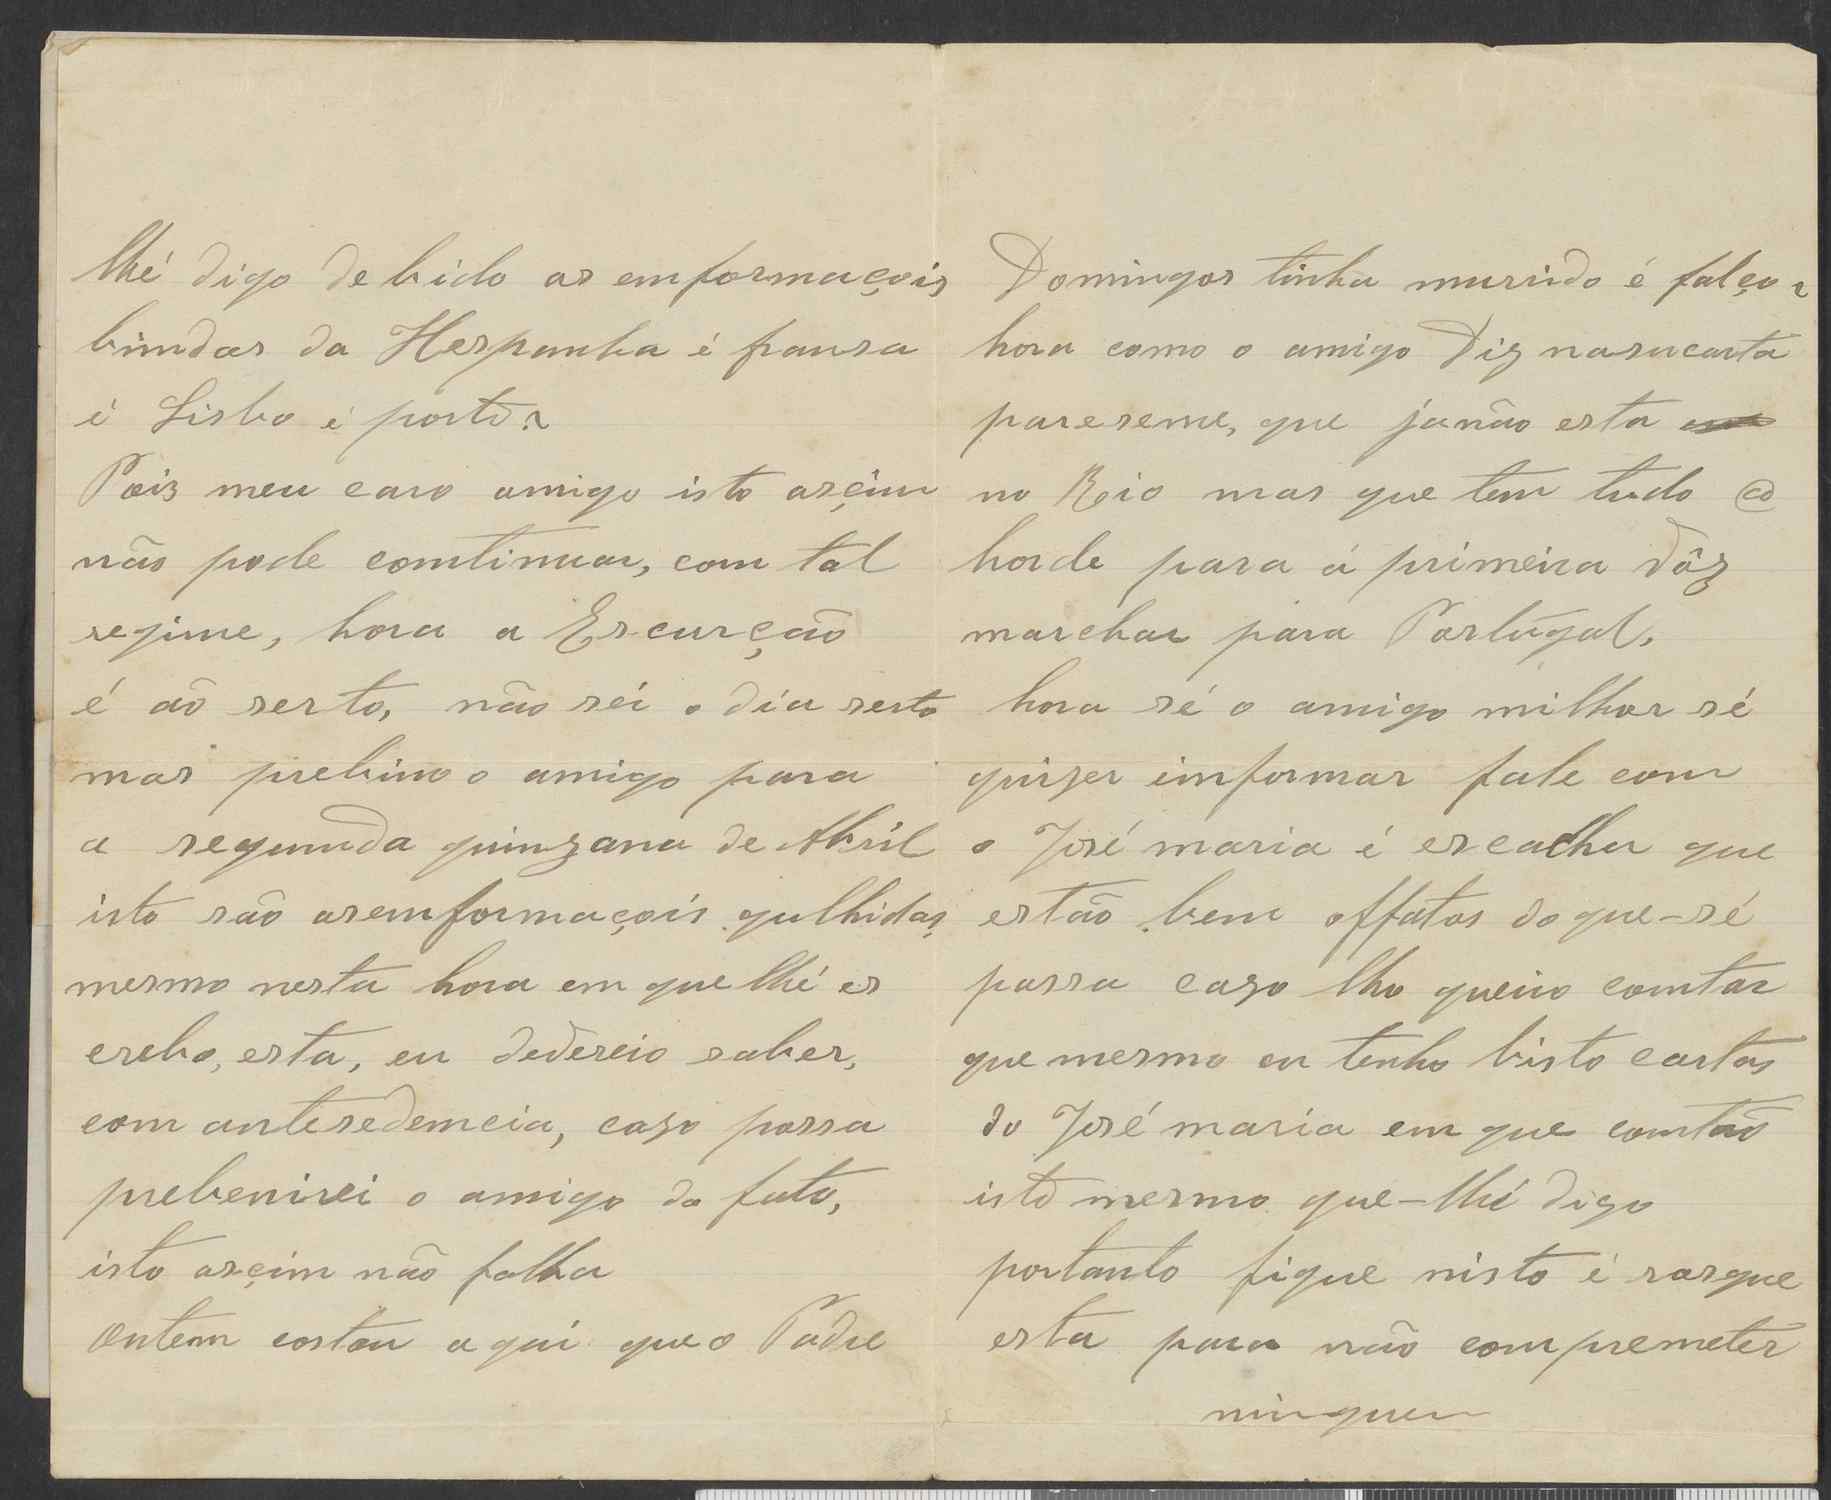 lhé digo debido as emformaçois
bimdas da Hespanha é fransa
é Lisbo é porto.
Pois meu caro amigo isto asçim
não pode comtinuar, com tal
regime, hora a Escurção
é aõ serto, não séi o dia serto
mas prebino o amigo para
a segumda quinzana de Abril
isto saõ asemformaçois qulhidas
mesmo nesta hora em que lhé es
crebo, esta, eu
saber,
com antesedemcia, cazo possa
prebenirei o amigo do fato,
isto asçim não falha
Ontem costou aqui que o Padre
Domingos tinha murrido é falço.
hora como o amigo Diz nasucarta
pareseme, que janão esta
no Rio mas que tem tudo a
horde para á primeira vôz
marchar para Portugal,
hora sé o amigo milhor sé
quizer imformar fale com
o José maria é escalha que
estão bem offatos do que-sé
passa cazo lho queiro comtar
que mesmo eu tenho bisto cartas
do José maria em que comtaõ
isto mesmo que-lhé digo
portanto fique nisto é rasgue
esta para não compremeter
ninguem